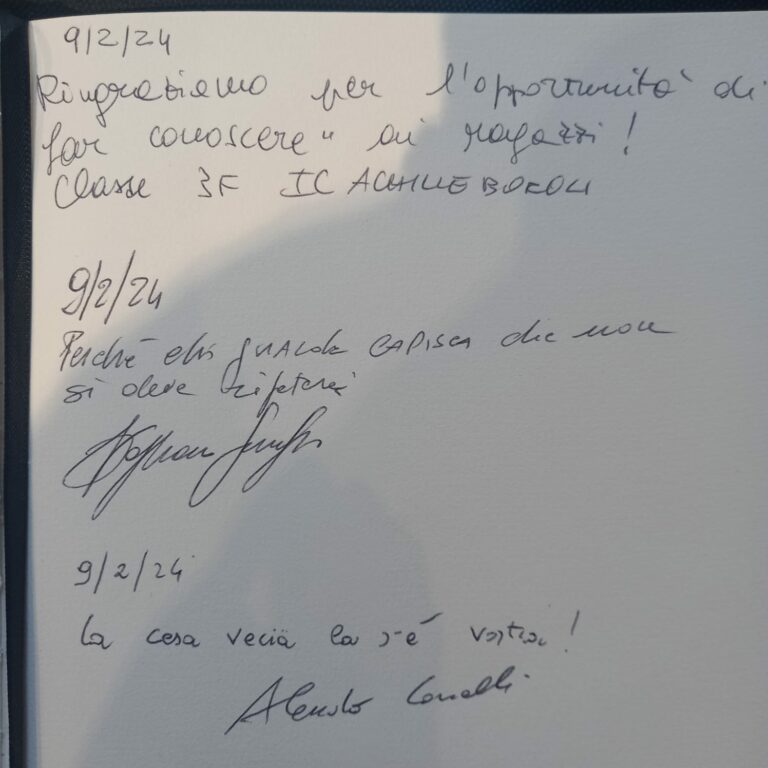 9/2/24
Ringraziamo per l'opportunità di
far conoscere" ai ragazzi!
Classe 3F IC ACHILLE BOROLI
9/2/24
Perché chi guarda CAPISCA che non
si deve ripetere
9/2/24
La cesa vecia la s-é vostra!